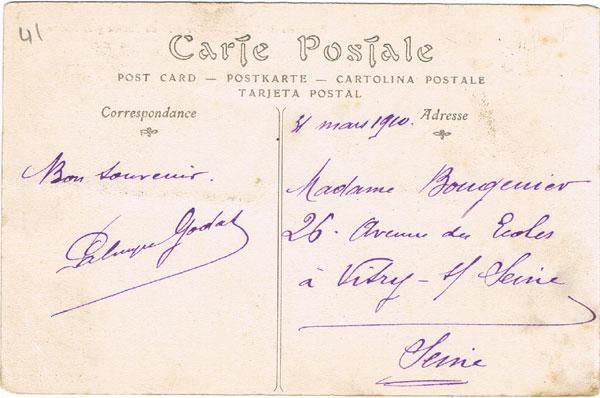 41
Carte Postale
POST CARD — POSTKARTE — CARTOLINA POSTALE
TARJETA POSTAL
Correspondance
Adresse
31 mars 1910.
Bon souvenir.
Godat
Madame Bougenier
26. Avenue des Ecoles
à Vitry-s/ Seine
Seine